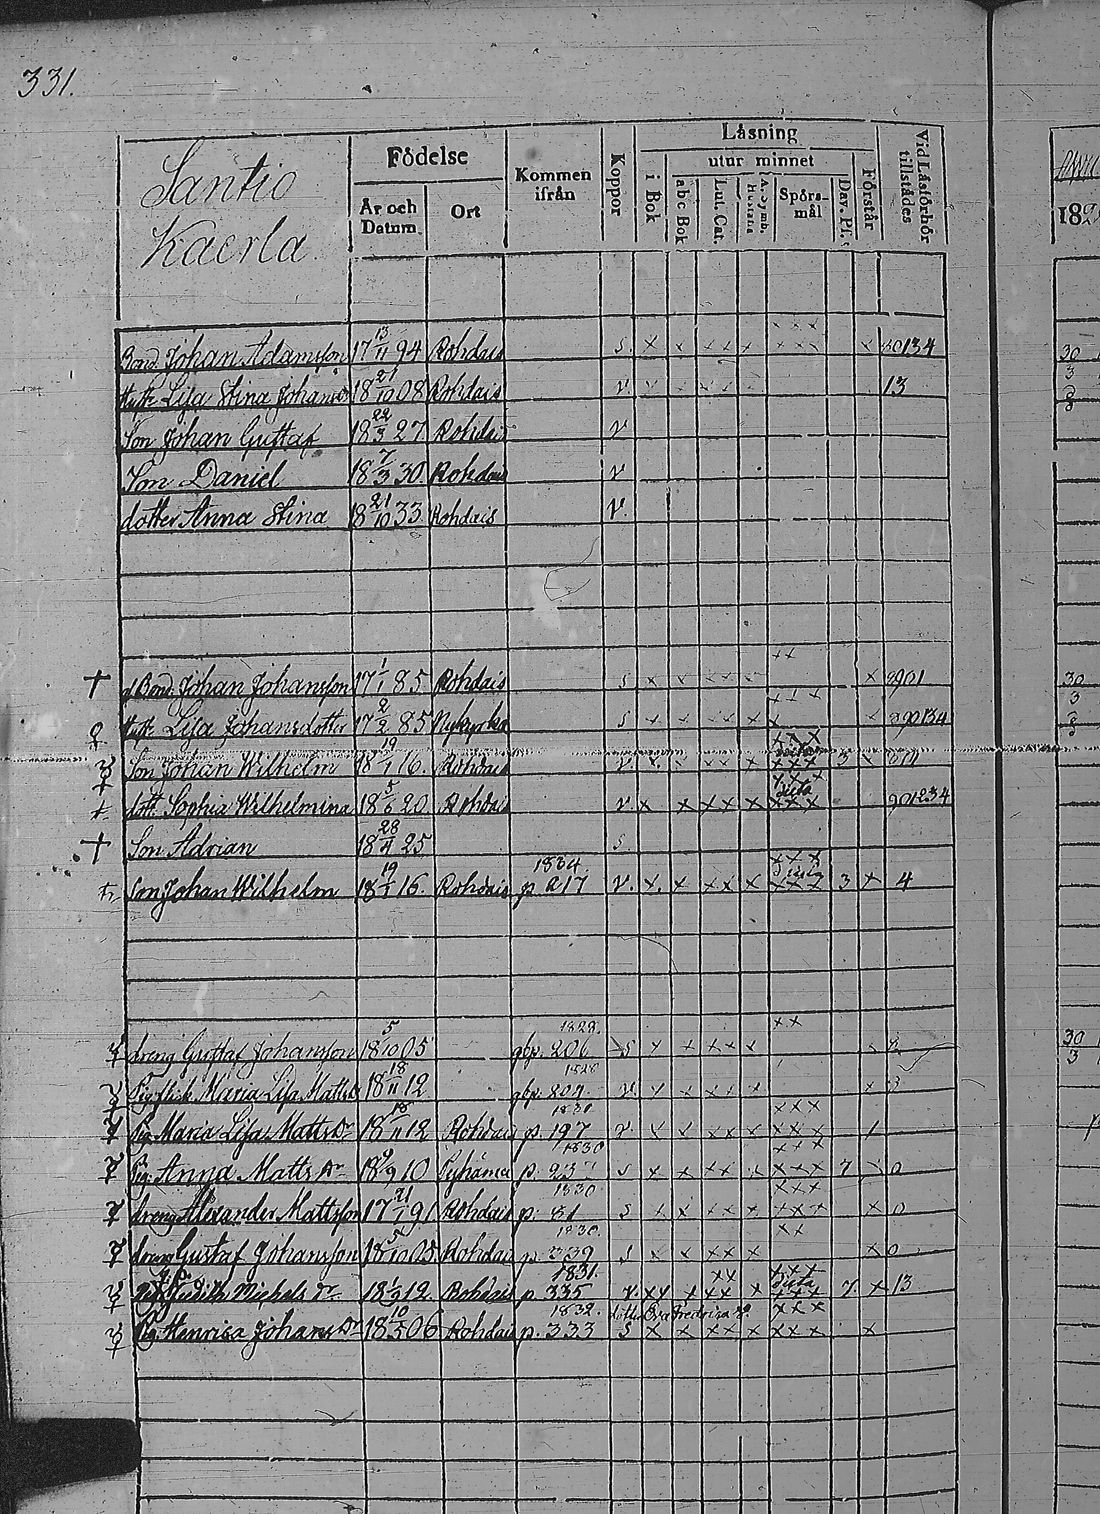 331.
Santio
Kaerla.
Födelse
År och Datum.
Ort
Kommen ifrån
Koppor
Låsning
i Bok
utur minnet
abc Bok
Lut. Cat.
A. Symb. Hustafla
Spörs-mål
Dav. Ps.
Förstår
Vid Låsförhör tillstådes
18
Bond. Johan Adamsson 17 13/11 94 Rohdais s. x x x x x x x x x x x
Hust. Lisa Stina Johansdr 18 21/10 08 Rohdais v. 13
Son Johan Gustaf 18 22/3 27 Rohdais v
Son Daniel 18 7/3 30. Rohdais v
dotter Anna Stina 18 21/10 33. Rohdais v.
† d Bond. Johan Johansson 17 1/1 85 Rohdais s x x x x x x x x 8901
Hust. Lisa Johansdotter 17 2/2 85 Nykyrka s x x x x x x x 890134
Son Johan Wilhelm 18 19/1 16. Rohdais v 3 x
dott. Sophia Wilhelmina 18 5/6 20 Rohdais v. x x x x x x x x 901234
† Son Adrian 18 28/4 25 s
1834
Son Johan Wilhelm 18 19/1 16. Rohdais p. 217 v. x. x x x x x x x 3 x 4
1828.
dreng Gustaf Johansson 18 5/10 05 gbp. 206 s x x x x x x
1828
Pig. Maria Lisa Mattsdr 18 18/11 12 gbp. 204 v. x x x x x x
1830.
Pig. Maria Lisa Mattsdr 18 18/11 12 Rohdais p. 197 v x x x x x x x x 1
1830
Pig. Anna Matts dr 18 9/9 10 Pyhäma p. 237 s x x x x x x x x 7 0
1830
dreng Alexander Mattsson 17 21/1 91 Rohdais p. 81 s x x x x x x x x x 0
1830.
dreng Gustaf Johansson 18 5/10 05 Rohdais p. 339 s x x x x x x 0
1831.
Pig. Judith Michels dr 18 1/9 12. Rohdais p. 335 v. x x x x x x x x x x 7. x 13
1832.
Pig. Henrica Johans dr 18 10/5 06 Rohdais p. 333 s x x x x x x x x x